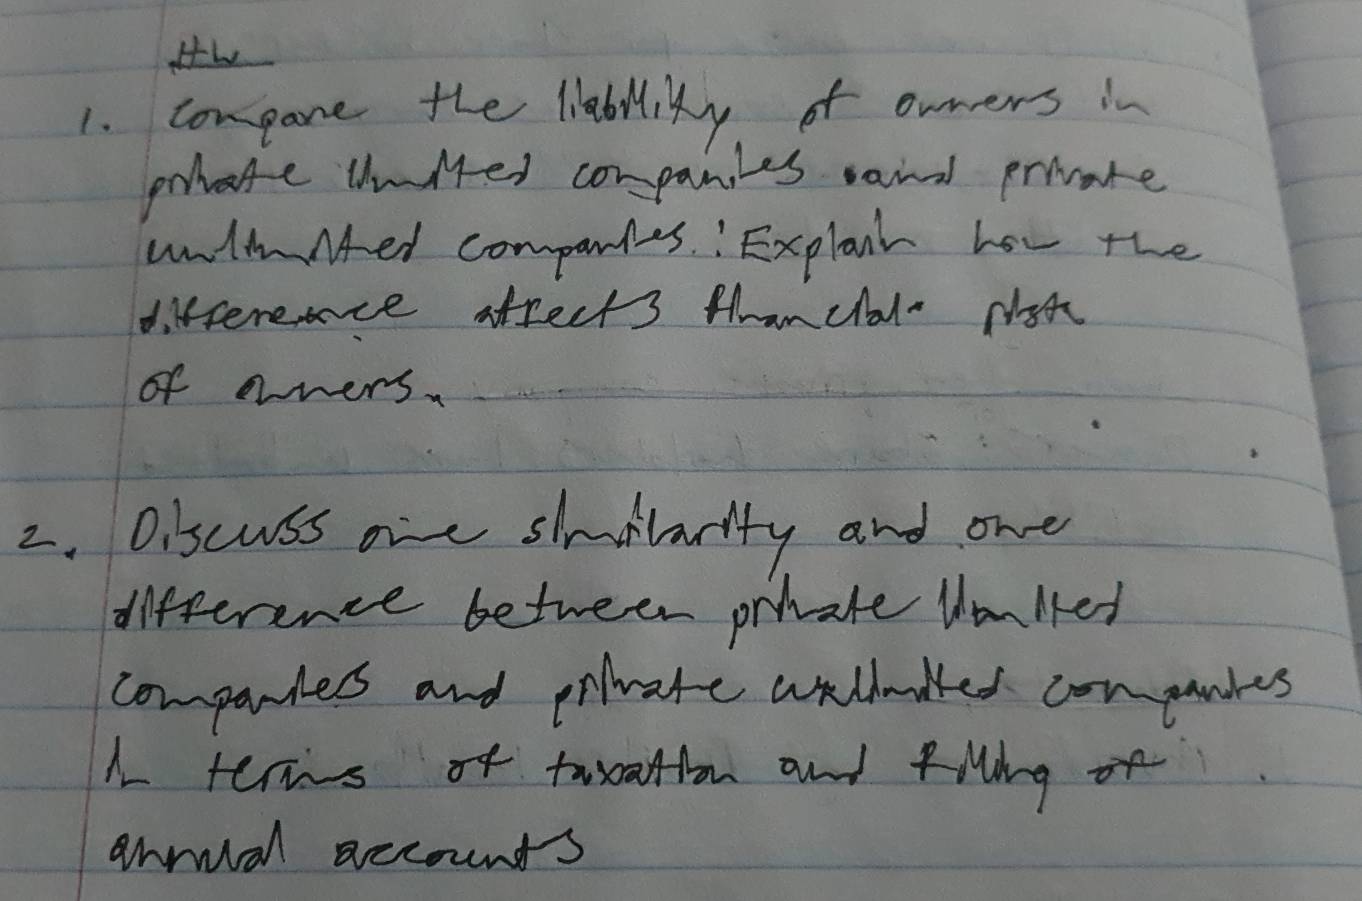 HW
1. Compare the liability of owners in
private limited companies and private
unlimited companies. Explain how the
difference affects financial risk
of owners.
2. Discuss one similarity and one
difference between private limited
companies and private unlimited companies
in terms of taxation and filling of
annual accounts